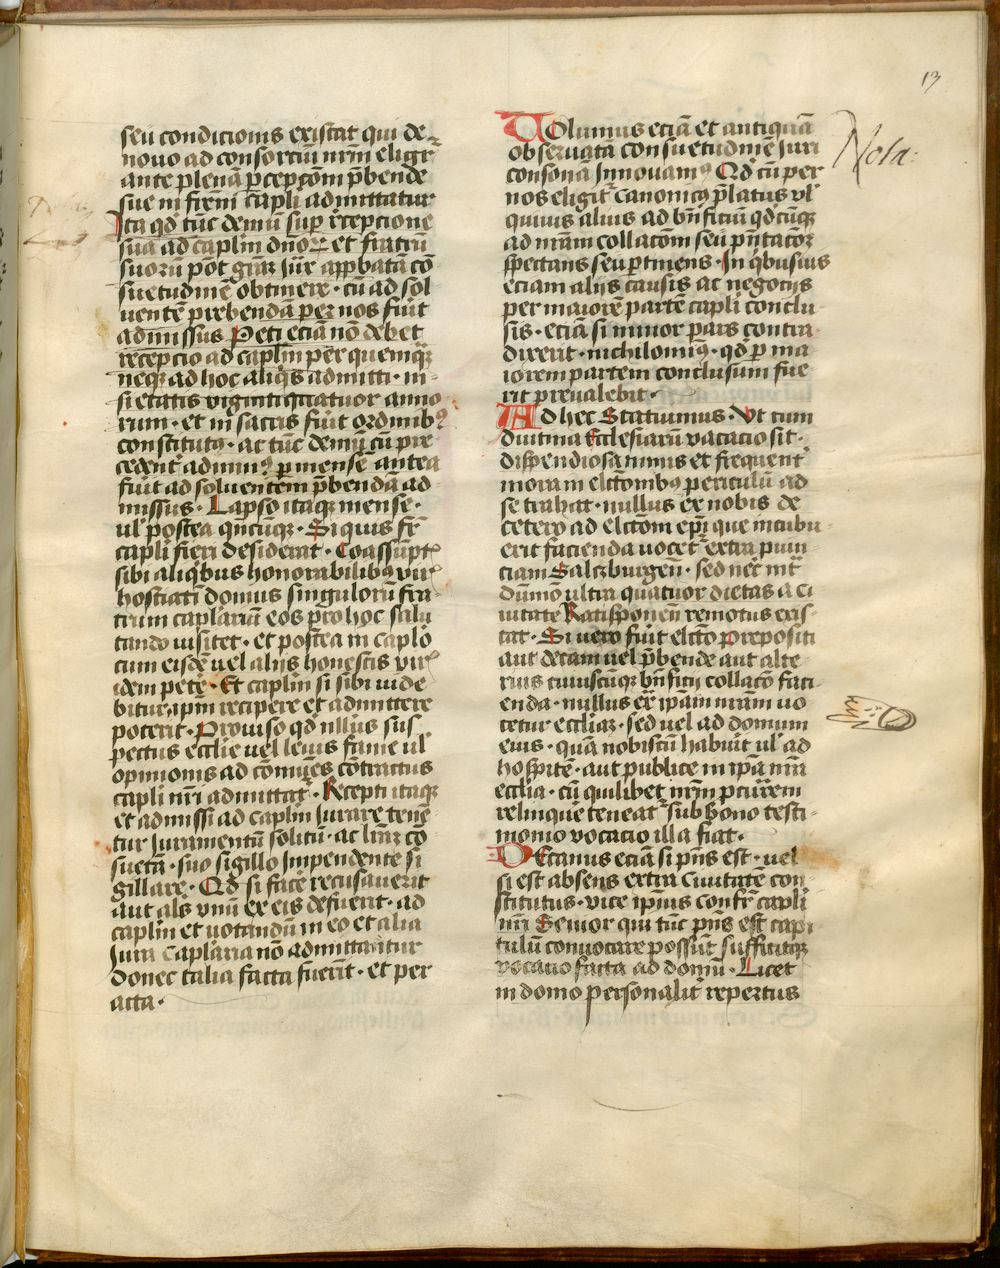 13
seu condicionis existat qui de
nouo ad consorciū nr̄m eligit̄
ante plenā ꝑcepcōm p̄bende
sue in firm̄i capli admittatur
Ita qd̓ tūc demū suꝑ recepcione
sua ad caplm̄ dn̄oꝝ et fratrū
suorū pōt grā iur̄ appbatā cō
suetudinē obtinere · cū ad sol
uentē prebendā per nos fūit
admissus Peti eciā nō debet
recepcio ad caplm̄ per quemqꝫ
neqꝫ ad hoc aliqͥs admitti · ni
si etatis vigintiquatuor anno
rum · et in sacris fūit ordinibꝰ
constitutꝰ · ac tūc demū cū pre
cedent̄
ꝑ mensē antea
fūit ad soluentem p̄bendā ad
missus · Lapso itaqꝫ mense ·
ul̓ postea qn̄cūqꝫ · Si quis fr̄
capli fieri desiderat · Coassūpt̄
sibi aliqͥbus honorabilibꝰ vir̄
hostiatī domus singulorū fra
trum caplariū eos pro hoc salu
tando visitet · et postea in caplo
cum eisdē vel alijs honestis vir̄
idem petē · Et caplm̄ si sibi uide
bitur ip̄m recipere et admittere
poterit · Prouiso qd̓ nllūs sus
pectus ecclie vel leuis fame ul̓
opinionis ad cōmūes cōtractus
capli nr̄i admittat̄ · Recepti itaqꝫ
et admissi ad caplm̄ iurare tenē
tur iuramentū solitū · ac lrā cō
suetā · suo sigillo impendente si
gillare · Qd̓ si facē recusauerit
aut als̄ vnū ex eis defuerit · ad
caplm̄ et votandū in eo et alia
iura Caplaria nō admittantur
donec talia facta fuerīt · et per
acta ·
Volumus eciā et antiquā
obseruatā consuetudinē iuri
consonā innouamꝰ Qd̓ cū per
nos eligit̄ canonicꝰ p̄latus ul̓
quiuis alius ad bn̄ficiū qd̓cūqꝫ
ad nr̄am collacōm seu pn̄tacōem
spectans seu ꝑtinens · In qͥbusuis
eciam alijs causis ac negocijs
per maiorē partē capli conclu
sis · eciā si minor pars contra
dixerit · nichilominꝰ · qd̓ ꝑ ma
iorem partem conclusum fue
rit preualebit ·
Ad hec Statuimus · Vt cum
diutina Ecclesiarū vacacio sit ·
dispendiosa nimis et frequent̄
moram elctōnibꝰ periculū ad
se trahat · nullus ex nobis de
cetero ad elctōm ep̄i que incubu
erit facienda vocet̄ extra puin
ciam Salczburgen̄ · sed nec int̄
dūmō ultra quatuor dietas a ci
uitate Ratisponen̄ remotus exis
tat · Si vero fūit elctō prepositi
aut decani vel p̄bende aut alte
rius cuiuscūqꝫ bn̄ficij collacō faci
enda · nullus ex ip̄am nr̄am vo
cetur eccliaꝫ · sed vel ad domum
eius · quā nobiscū habuit ul̓ ad
hospitē · aut publice in ip̄a nr̄a
ecclia · cū quilibet nr̄m ꝓcur̄em
relinquē teneat̄ sub bono testi
monio vocacio illa fiat ·
Decanus eciā si pn̄s est · vel
si est absens extra Ciuitatē con
stitutus · vice ip̄ius confr̄ capli
nr̄i Senior qui tūc pn̄s est capi
tulū conuocare possūt sufficitqꝫ
vocacio facta ad domū · Licet
in domo personalit̄ repertus
Nota: